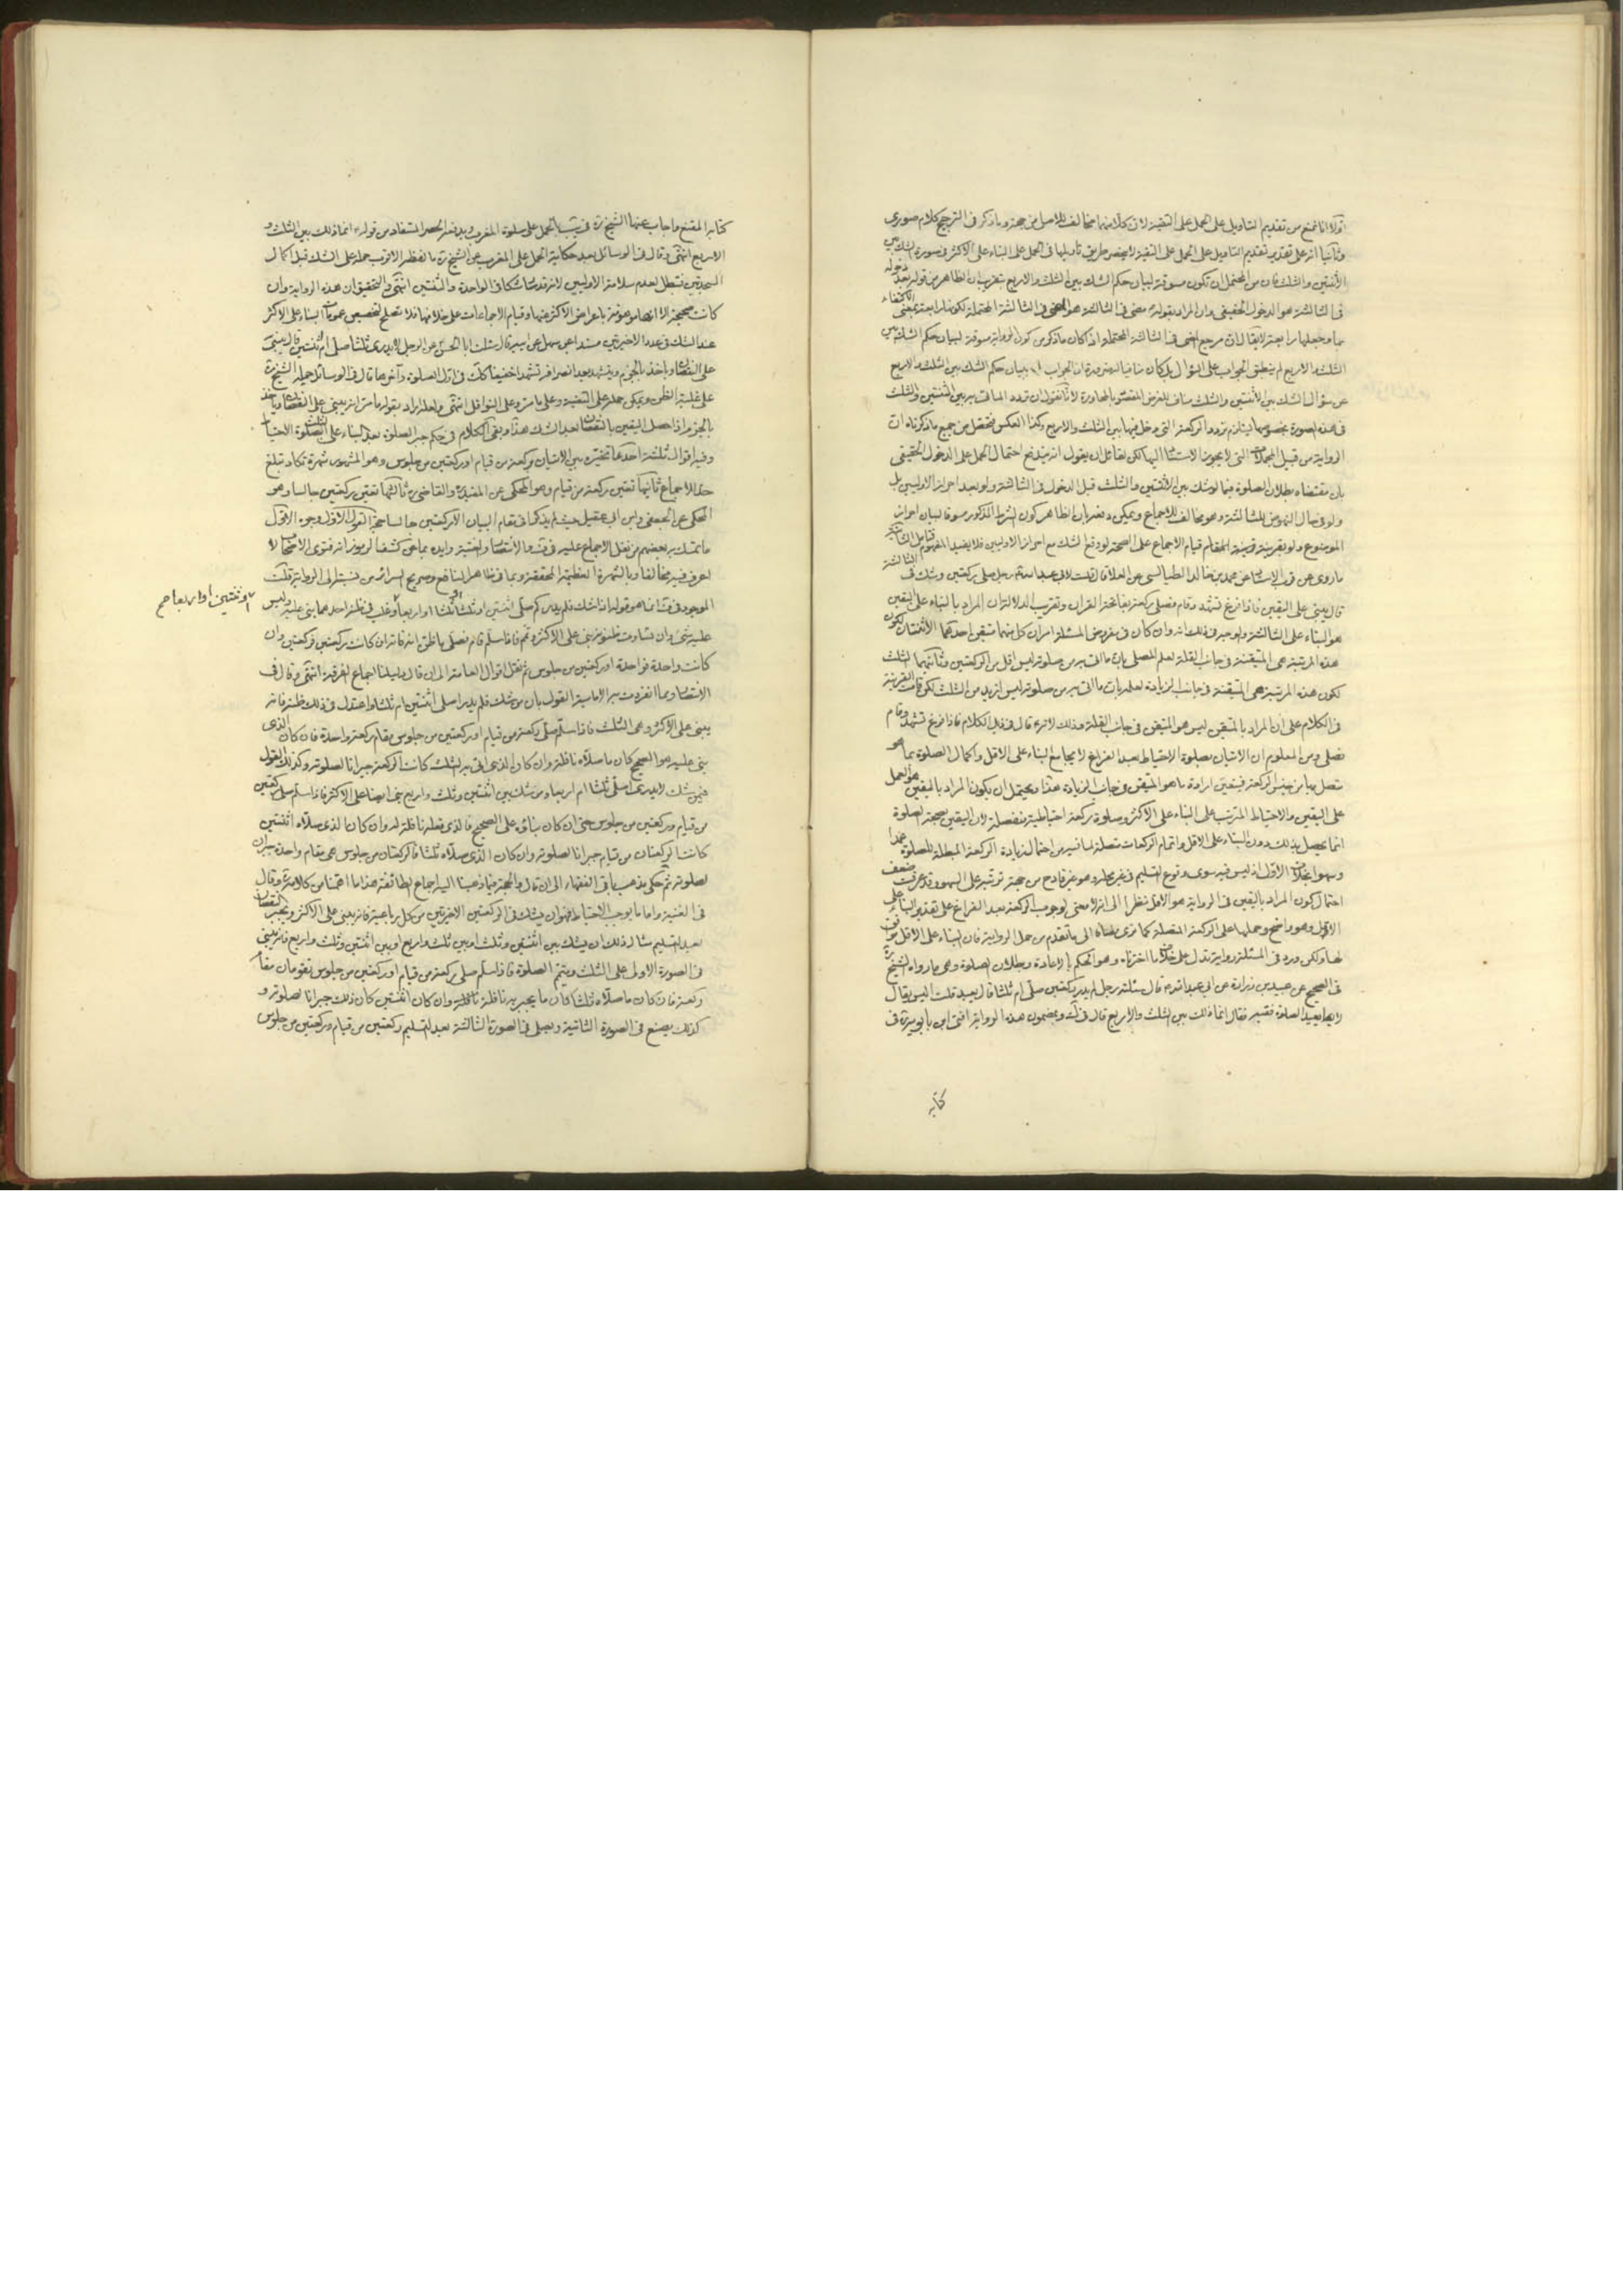 اولا انا نمنع من تقديم التاويل على الحمل على التقية لان كلا منهما مخالف للاصل من جهة وما ذكر فى الترجيح كلام صورى
وثانيا انه على تقدير تقديم التاويل على الحمل على التقية لا ينحصر طريق تاويلها فى الحمل على البناء على الاكثر فى صورة الشك بين
الاثنتين والثلث فان من المحتمل ان تكون مسوقة لبيان حكم الشك بين الثلث والاربع بتقريب ان الظاهر من قوله بعد دخوله
فى الثالثة هو الدخول الحقيقى وان المراد بقوله مضى فى الثالثة هو المضى فى الثالثة المحتملة لكونها رابعة بمعنى الاكتفاء
بها وجعلها رابعة
الثلث والاربع لم ينطبق الجواب على السؤال بل كان منافيا له ضرورة ان الجواب ببيان حكم الشك بين الثلث والاربع
عن سؤال الشك بين الاثنتين والثلث مناف للغرض المقصود بالمحاورة لانا نقول ان تردد الماتى به بين الاثنتين والثلث
فى هذه الصورة بخصوصها يستلزم تردد الركعة التى دخل فيها بين الثلث والاربع وكذا العكس فتحصل من جميع ما ذكرناه ان
الرواية من قبيل المجملات التى لا يجوز الاستناد اليها لكن لقائل ان يقول انه يندفع احتمال الحمل على الدخول الحقيقى
بان مقتضاه بطلان الصلوة فيما لو شك بين الاثنتين والثلث قبل الدخول فى الثالثة ولو بعد احراز الاوليين بل
ولو فى حال النهوض للثالثة وهو مخالف للاجماع ويمكن دفعه بان الظاهر كون الشرط المذكور مسوقا لبيان احراز
الموضوع ولو بقرينة قيام الاجماع على الصحة لو وقع الشك مع احراز الاوليين فلا يفيد المفهوم فتامل الثالثة
ما روى عن قرب الاسناد عن محمد بن خالد الطيالسى عن العلاء قال قلت لابى عبد الله رجل صلى ركعتين وشك فى الثالثة
قال يبنى على اليقين فاذا فرغ تشهد وقام فصلى ركعة بفاتحة القران وتقريب الدلالة ان المراد بالبناء على اليقين
هو البناء على الثالثة والوجه فى ذلك انه وان كان فى مفروض المسئلة امران كل منهما متيقن احدهما الاثنتان لكون
هذه المرتبة هى المتيقنة فى جانب القلة لعلم المصلى بان ما اتى به من صلوته ليس اقل من الركعتين وثانيهما الثلث
لكون هذه المرتبة هى المتيقنة فى جانب الزيادة لعلمه بان ما اتى به من صلوته ليس ازيد من الثلث لكن قامت القرينة
فى الكلام على ان المراد بالمتيقن ليس هو المتيقن فى جانب القلة وذلك لانه قال فى ذيل الكلام فاذا فرغ تشهد وقام
فصلى ومن المعلوم ان الاتيان بصلوة الاحتياط بعد الفراغ لا يجامع البناء على الاقل واكمال الصلوة بما هو
متصل بها من جنس الركعة فيتعين ارادة ما هو المتيقن فى جانب الزيادة هذا ويحتمل ان يكون المراد باليقين هو العمل
على اليقين والاحتياط المترتب على البناء على الاكثر وصلوة ركعة احتياطية منفصلة لان اليقين بصحة الصلوة
انما يحصل بذلك دون البناء على الاقل واتمام الركعات متصلة لما فيه من احتمال زيادة الركعة المبطلة للصلوة عمدا
وسهوا بخلاف الاول اذ ليس فيه سوى وقوع التسليم فى غير محله وهو غير قادح من جهة ترتبه على السهو وقد عرفت ضعف
احتمال كون المراد باليقين فى الرواية هو الاقل نظرا الى انه لا معنى لوجوب الركعة بعد الفراغ على تقدير البناء على
الاقل وهو واضح وحملها على الركعة المتصلة كما ترى مضافا الى ما تقدم من حمل الرواية فان البناء على الاقل موافق
لها ولكن ورد فى المسئلة رواية تدل على خلاف ما اخترناه وهو الحكم بالاعادة وبطلان الصلوة وهى ما رواه الشيخ ره
فى الصحيح عن عبيد بن زرارة عن ابى عبد الله قال سئلته رجل لم يدر ركعتين صلى ام ثلثا قال يعيد قلت اليس يقال
لا يعيد الصلوة فقيه فقال انما ذلك بين الثلث والاربع قال فى ك وبمضمون هذه الرواية افتى ابن بابويه ره فى
كتابه
كتابه المقنع واجاب عنها الشيخ ره فى يب بالحمل على صلوة المغرب ويدفعه الحصر المستفاد من قوله انما ذلك بين الثلث و
الاربع انتهى وقال فى الوسائل بعد حكاية الحمل على المغرب عن الشيخ ره ما لفظه الاقرب حمله على الشك قبل اكمال
السجدتين فتبطل لعدم سلامة الاوليين لانه قد شك شكا فى الواحدة والثنتين انتهى والتحقيق ان هذه الرواية وان
كانت صحيحة الا انها موهونة باعراض الاكثر عنها وقيام الاجماعات على خلافها فلا تصلح لتخصيص عمومات البناء على الاكثر
عند الشك فى عدد الاخيرتين مسندا عن سهل عن ابيه قال سئلت ابا الحسن عن الرجل لا يدرى اثلثا صلى ام اثنتين قال يبنى
على النقصان وياخذ بالجزم ويتشهد بعد انصرافه تشهدا خفيفا كذلك فى اول الصلوة وآخرها قال فى الوسائل حمله الشيخ ره
على غلبة الظن ويمكن حمله على التقية وعلى ما مر وعلى النوافل انتهى ولعله اراد بقوله ما مر انه يبنى على النقصان وياخذ
بالجزم اذا حصل اليقين بالنقصان بعد الشك هذا وبقى الكلام فى حكم جبر الصلوة بعد البناء على الثلث بصلوة الاحتياط
وفيه اقوال ثلثة احدها تخييره بين الاتيان بركعة من قيام او ركعتين من جلوس وهو المشهور شهرة تكاد تبلغ
حد الاجماع ثانيها تعين ركعة من قيام وهو المحكى عن المفيد ره والقاضى ره ثالثها تعين ركعتين جالسا وهو
المحكى عن الجعفى وابن ابى عقيل حيث لم يذكرا فى مقام البيان الا ركعتين جالسا حجة القول الاول وجوه الاول
ما تمسك به بعضهم من نقل الاجماع عليه فى ف والانتصار والغنية وايده بما فى كشف الرموز انه فتوى الاصحاب لا
اعرف فيه مخالفا وبالشهرة العظيمة المحققة وبما فى ظاهر النافع وصريح السرائر من نسبته الى الرواية قلت
الموجود فى ف انما هو قوله اذا شك فلم يدر كم صلى اثنتين او ثلثا او ثلثا او اربعا وغلب فى ظنه احدهما بنى عليه وليس
او ثنتين او اربعا صح
عليه شىء وان تساوت ظنونه بنى على الاكثر وتم فاذا سلم قام فصلى ما ظن انه فاته ان كانت ركعتين فركعتين وان
كانت واحدة فواحدة او ركعتين من جلوس ثم نقل اقوال العامة الى ان قال دليلنا اجماع الفرقة انتهى وقال فى
الانتصار ومما انفردت به الامامية القول بان من شك فلم يدر اصلى اثنتين ام ثلثا واعتدل فى ذلك ظنه فانه
يبنى على الاكثر وهى الثلث فاذا سلم صلى ركعة من قيام او ركعتين من جلوس مقام ركعة واحدة فان كان الذى
بنى عليه هو الصحيح كان ما صلاه نافلة وان كان الذى اتى به الثلث كانت الركعة جبرانا لصلوته وكذلك القول
فيمن شك لا يدرى اصلى ثلثا ام اربعا ومن شك بين اثنتين وثلث واربع بنى ايضا على الاكثر فاذا سلم صلى ركعتين
من قيام وركعتين من جلوس حتى ان كان بناؤه على الصحيح فالذى فعله نافلة له وان كان الذى صلاه اثنتين
كانت الركعتان من قيام جبرانا لصلوته وان كان الذى صلاه ثلثا فالركعتان من جلوس هى مقام واحدة جبران
لصلوته ثم حكى مذهب باقى الفقهاء الى ان قال والحجة فيما ذهبنا اليه اجماع الطائفة هذا ما اهمنا من كلامه وقال
فى الغنية واما ما يوجب الاحتياط فهو ان يشك فى الركعتين الاخيرتين من كل رباعية فانه يبنى على الاكثر ويجبر النقصان
بعد التسليم مثال ذلك ان يشك بين اثنتين وثلث او بين ثلث واربع او بين اثنتين وثلث واربع فانه يبنى
فى الصورة الاولى على الثلث ويتم الصلوة فاذا سلم صلى ركعة من قيام او ركعتين من جلوس تقومان مقام
ركعة فان كان ما صلاه ثلثا كان ما يجبر به نافلة وان كان اثنتين كان ذلك جبرانا لصلوته و
كذلك يصنع فى الصورة الثانية ويصلى فى الصورة الثالثة بعد التسليم ركعتين من قيام وركعتين من جلوس